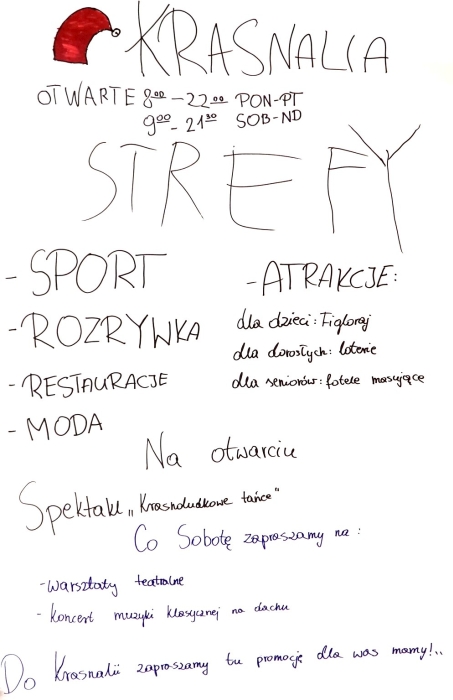 KRASNALIA
OTWARTE 8⁰⁰ – 22⁰⁰ PON-PT
9⁰⁰ – 21³⁰ SOB-ND
STREFY
- SPORT
- ROZRYWKA
- RESTAURACJE
- MODA
- ATRAKCJE:
dla dzieci: Figloraj
dla dorosłych: loterie
dla seniorów: fotele masujące
Na otwarciu
Spektakl „Krasnoludkowe tańce"
Co Sobotę zapraszamy na:
- warsztaty teatralne
- koncert muzyki klasycznej na dachu
Do Krasnalii zapraszamy tu promocje dla was mamy!..